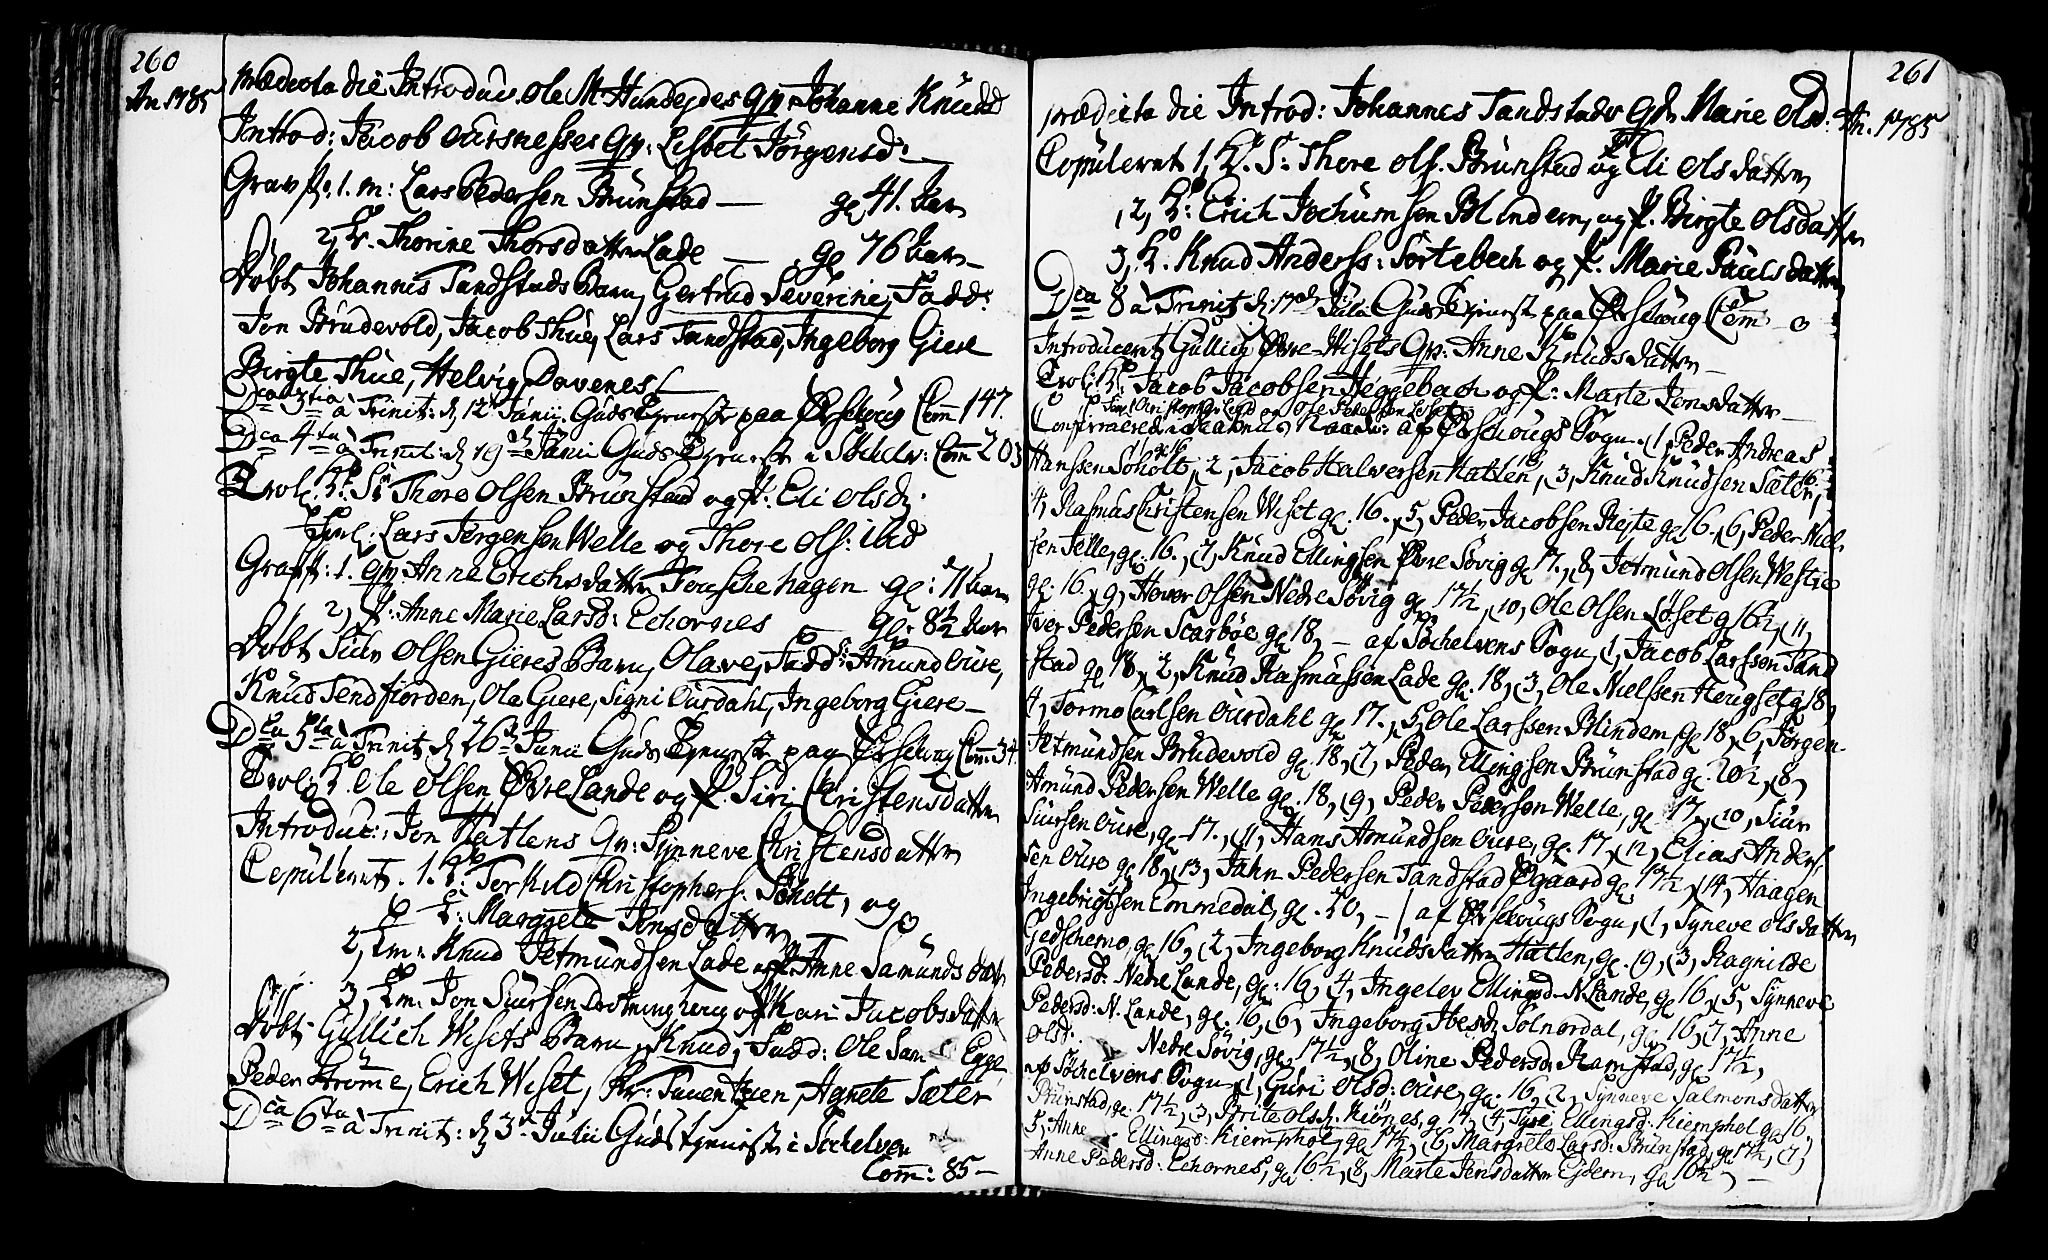 260
An. 1785
prædicta die Introduc. Ole M. Hundejdes Qv. Johanne Knudsd
Introd: Jacob Aursnesses Qv: Lisbet Jørgensd:
Gravf: 1. m: Lars Pedersen Brunstad — gl 41. Aar
2, Thorine Thorsdatter Lade — gl 76 Aar
Døbt Johannis Tandstads Barn, Gertrud Severine, Fadd:
Jon Brudevold, Jacob Thue, Lars Tandstad, Ingeborg Giere
Birgte Thue, Helvig Davenes
Dca 3tia à Trinit: d. 12 Junii Guds Tjeneste paa Ørschoug Com 147.
Dca 4ta à Trinit: d. 19de Junii Guds Tjeneste i Søchelv: Com 203
Trol. K. Sr Thore Olsen Brunstad og P. Eli Olsd.
Lars Jørgensen Welle og Thore Ols: ibid
Graff: 1. Qv. Anne Erichsdatter gl: 71 Aar
2, P: Anne Marie Larsd: Echornes gl: 8½ Aar
Døbt Siur Olsen Gieres Barn, Olave, Fadd: Amund Aure,
Knud Tendfiorden, Ola Giere, Signi Aurdahl, Ingeborg Giere —
Dca 5ta à Trinit d. 26de Junii Guds Tjeneste paa Ørschoug Com: 34
Trol: K. Ole Olsen Øvre Lande og P. Siri Christensdatter
Introduc: Jon Hatlens Qv: Synneve Christensdatter
Copulerut. 1. K: Torkild Christophers: Søholt, og
P: Margrete Jonsdatter
2, Em: Knud Jetmundsen Lade og P. Anne Samundsdat
3, Em: Jon Siursen og P Kari Jacobsdatter
Døbt Gullich Wisets Barn, Knud, Fadd: Ole Egge,
Peder Strømme, Erich Wiset, Agnete Sæter
Dca 6ta à Trinit: d. 3de Julii Guds tjeneste i Søchelven
Com: 85 —
261
An. 1785
prædicta die Introd: Johannes Tandstads Qv. Marie Olsd:
Copulerut 1, K. S: Thore Ols. Brunstad og P Eli Olsdatter
2, K: Erich Jochumsen Blindem, og P. Birgte Olsdatter
3, K. Knud Anderss: Sortebech og P. Marie Paulsdatter
Dca 8 à Trinit d. 17de Julii Guds Tjeneste paa Ørschoug Com — 0
Introducerut Gullich Øvre Wisets Qv: Anne Knudsdatter —
Trol: K: Jacob Jacobsen Heggebach og P: Marte Jonsdatter —
Confirmerede af Ørschougs Sogn. (1, Peder Andreas
Hanssen Søholt, 2, Jacob Halversen Hatlen, 3, Knud Knudsen Sæter,
4, Rasmus Christensen Wiset gl. 16. 5, Peder Jacobsen Rejte gl 16 (6, Peder Niel-
sen Jelle, gl. 16. (7, Knud Ellingsen Øvre Søvig gl 17. (8, Jetmund Olsen Westre
gl: 16. (9, Hover Olsen Nedre Søvig gl 17½, (10, Ole Olsen Løset gl 16½, (11,
Iver Pedersen Scarbøe gl 18, — af Søchelvens Sogn, (1, Jacob Larssen Tand
stad gl 18, 2, Knud Rasmussen Lade gl. 18, (3, Ole Nielsen Haugset gl 18,
4, Tormo Carlsen Aurdahl gl 17., 5, Ole Larssen Blindem, gl 18, (6, Jørgen
Jetmundsen Brudevold gl 18, (7, Peder Ellingsen Brunstad gl. 20½, (8,
Amund Pedersen Welle gl. 18, (9, Peder Pedersen Welle, gl 17, (10, Siur
Siursen Aure, gl 17., (11, Hans Amundsen Aure, gl. 17, (12, Elias Anders-
sen Aure gl 18, (13, Jahn Pedersen Tandstad Øgaard gl 17½, (14, Haagen
Ingebrigtsen Emmedal, gl. 20, — af Ørschougs Sogn, (1, Synneve Olsdatter
gl 16, (2, Ingeborg Knudsdatter Hatlen, gl. 19, (3, Ragnilde
Pedersd: Nedre Lande, gl: 16, (4, Ingelev Ellingsd: N. Lande, gl 16. (5, Synneve
Pedersd: N. Lande, gl: 16, (6, Ingeborg Solnørdal, gl 16, (7, Anne
Olsd: Nedre Søvig, gl 17½, (8, Oline Pedersd: Ramstad, gl 17½,
af Søchelvens Sogn (1, Guri Olsd: Aure, gl. 16, 2, Synneve Salmonsdatter
Brunstad, gl: 17½, (3, Brite Olsd: gl 17, (4, Tyre Ellingsd: Kiemphol gl 16,
5, Anne Ellingsd: Kiemphol, gl 17½, (6, Margrete Larsd: Brunstad, gl 17½, (7,
Anne Pedersd: Echornes, gl 16½, (8, Marte Jensdatter Ejdem, gl 16½, —